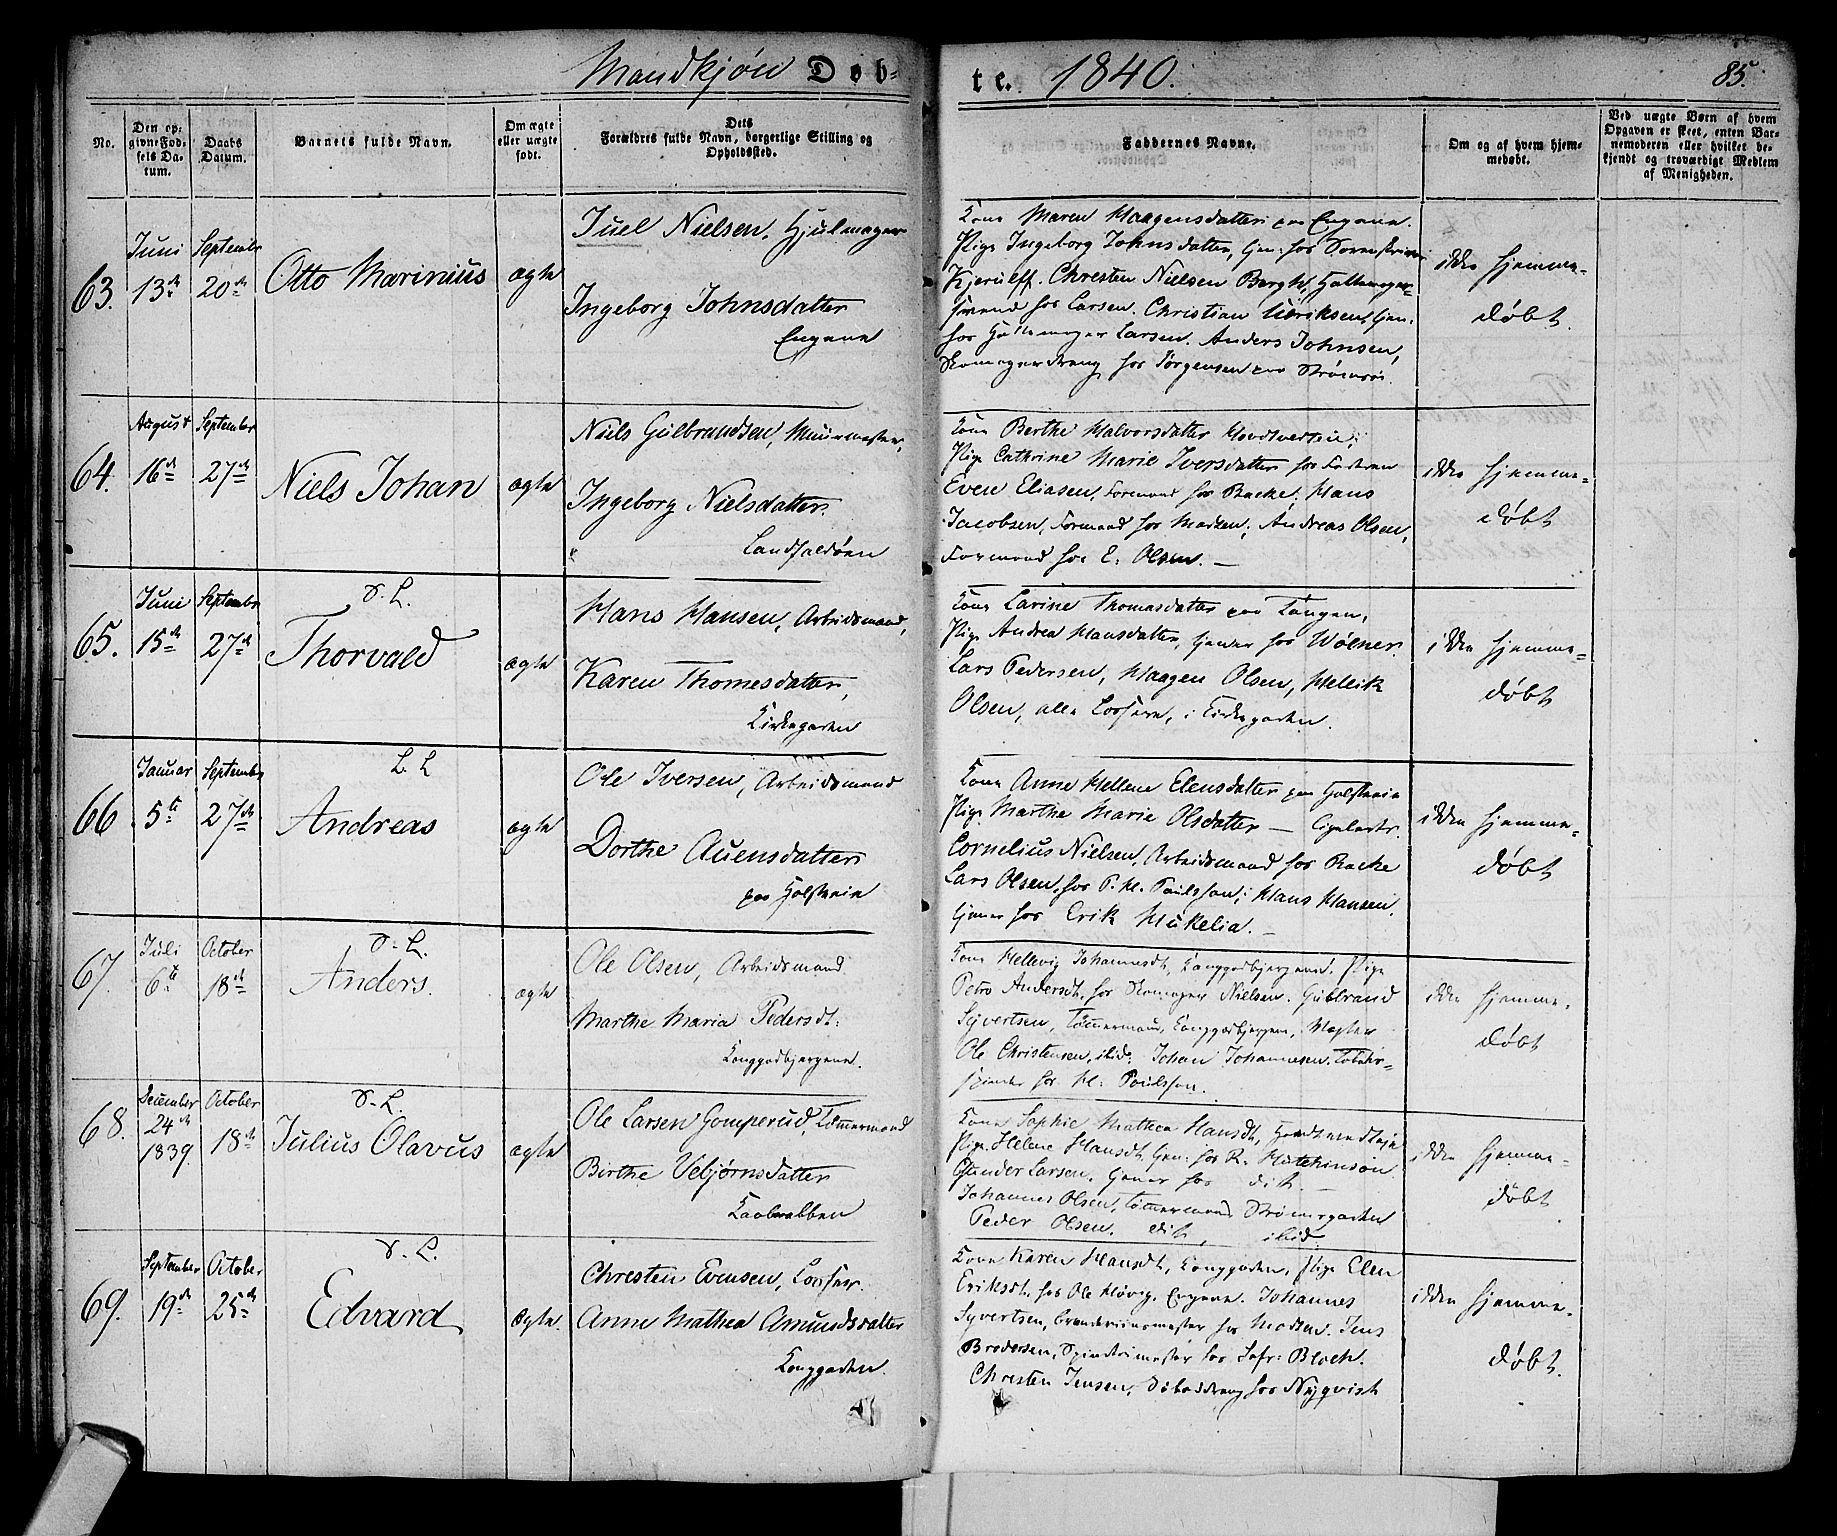 Mandkjøn Døb-
te. 1840.
85.
No.
Den op-
givne Fød-
sels Da-
tum.
Daabs
Datum.
Barnets fulde Navn.
Om ægte
eller uægte
født.
Dets
Forældres fulde Navn, borgerlige Stilling og
Opholdssted.
Faddernes Navne.
Om og af hvem hjem-
medøbt.
Ved uægte Børn af hvem
Opgaven er skeet, enten Bar-
nemoderen eller hvilket be-
kjendt og troværdigt Medlem
af Menigheden.
63.
Juni
13de
September
20de
Otto Marinius
ægte
Juel Nielsen, Hjulmager
Ingeborg Johnsdatter
Engene
Kone Maren Haagensdatter paa Engene.
Pige Ingeborg Johnsdatter, tjen: hos
Kjerulff. Christen Nielsen Bergh,
Svend hos Larsen. Christian Eriksen, tjen:
hos Larsen. Anders Johnsen,
Skomagerdreng hos Jørgensen paa Strømsøe.
ikke hjemme-
døbt.
64.
August
16de
September
27de
Niels Johan
ægte
Niels Gulbrandsen, Muurmester,
Ingeborg Nielsdatter
Landfaldøen
Kone Berthe Halvorsdatter
Pige Cathrine Marie Iversdatter hos
Even Eliasen, Formand hos Backe. Hans
Jacobsen, Formand hos Madsen, Andreas Olsen,
Formand hos E. Olsen. —
ikke hjemme-
døbt
65.
Juni
15de
September
27de
D. L.
Thorvald
ægte
Hans Hansen, Arbeidsmand,
Karen Thomesdatter,
Kirkegaden
Kone Larine Thomasdatter paa Tangen,
Pige Andrea Hansdatter, tjener hos Wølner
Lars Pedersen, Haagen Olsen, Hellik
Olsen, alle Loosere, i Kirkegaden.
ikke hjemme-
døbt
66
Januar
5te
September
27de
D. L
Andreas
ægte
Ole Iversen, Arbeidsmand
Dorthe Auensdatter
paa Holstein
Kone Anne Hellene Elensdatter paa Holstein
Pige Marthe Marie Olsdatter —
Cornelius Nielsen, Arbeidsmand hos Backe
Lars Olsen, hos P. H. Poulsson; Hans Hansen,
tjener hos Erik Mukelia. —
ikke hjemme-
døbt
67.
Juli
6te
October
18de
D. L.
Anders.
ægte
Ole Olsen, Arbeidsmand.
Marthe Maria Pedersdt:
Konggadbjergene.
Kone Hellevig Johannesdt, Konggadbjergene. Pige
Petra Andersdt. hos Skomager Nielsen. Gulbrand
Syvertsen, Tømmermand, Konggadbjergene,
Ole Christensen, ibid: Johan Johannesen. Tobaks-
spinder hos H. Poulsson.
ikke hjemme-
døbt
68.
December
24de
1839.
October
18de
D. L.
Julius Olavus
ægte
Ole Larsen Gomperud, Tømmermand
Birthe Vebjørnsdatter
Kone Sophie Mathea Hansdt,
Pige Helene Hansdt. tjen: hos R. Hutchinson
Gunder Larsen, tjener hos dit. —
Johannes Olsen, Tømmermand Strømsgaden
Peder Olsen. dit, ibid.
ikke hjemme-
døbt
69.
September
19de
October
25de
D. L.
Edvard
Ægte.
Chresten Evensen, Looser.
Anne Mathea Amundsdatter
Konggaden.
Kone Karen Hansdt, Konggaden, Pige Elen
Eriksdt. hos Ole Høvig, Engene. Johannes
Syvertsen, Brænderimester hos Madsen. Jens
Brodersen, Spinderimester hos Jofr: Bloch.
Chresten Jensen, hos Nyqvist
ikke hjemme-
døbt.